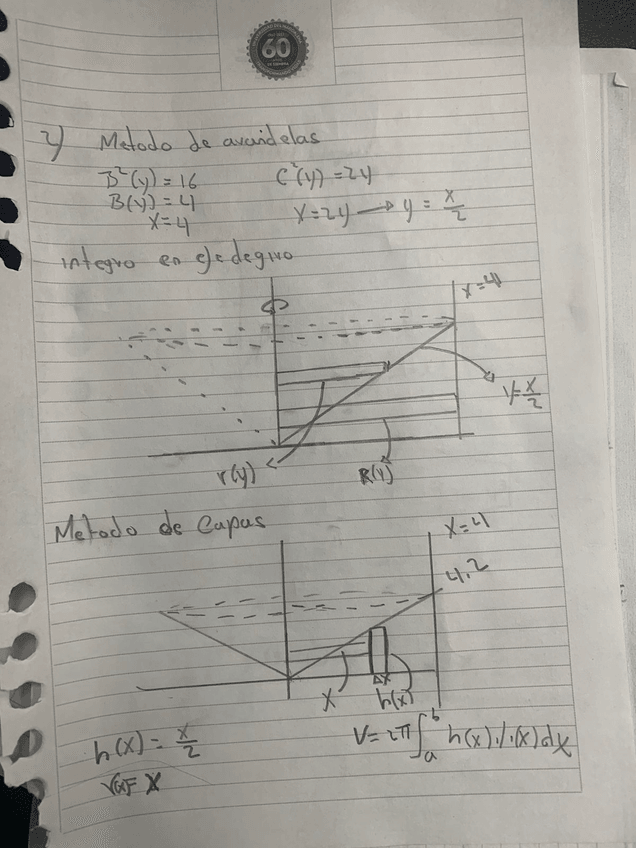 60
2) Metodo de arandelas
B²(y) = 16 C²(y) = 2y
B(y) = 4 x = 2y → y = x/2
x = 4
integro en eje de giro
x = 4
y = x/2
r(y) R(y)
Metodo de Capas
x = 4
4,2
x Δx h(x)
h(x) = x/2 V = 2π∫ₐᵇ h(x)·r(x)dx
r(x) = x